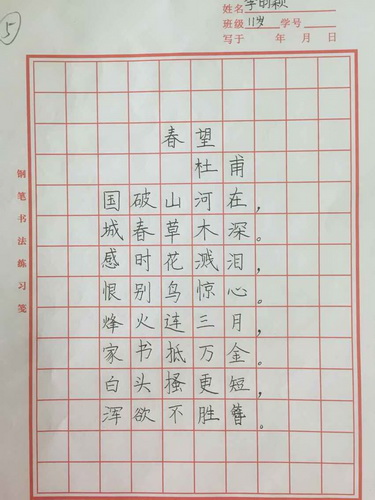 5
姓名 李明颖
班级 11岁 学号
写于 年 月 日
钢笔书法练习笺
春望
杜甫
国破山河在，
城春草木深。
感时花溅泪，
恨别鸟惊心。
烽火连三月，
家书抵万金。
白头搔更短，
浑欲不胜簪。